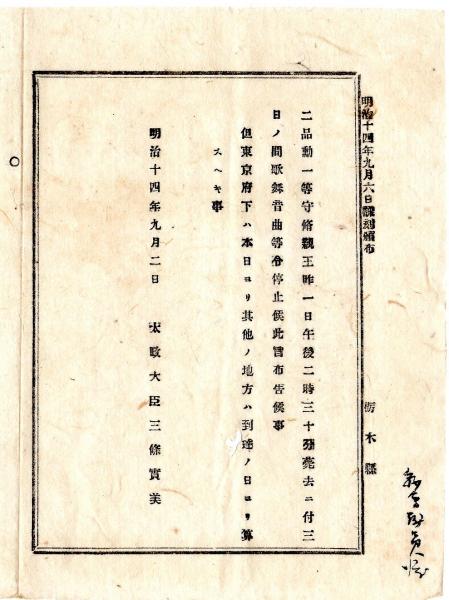 明治十四年九月六日飜刻頒布　栃木縣
二品勳一等守脩親王昨一日午後二時三十分薨去ニ付三
日ノ間歌舞音曲等令停止候此旨布告候事
但東京府下ハ本日ヨリ其他ノ地方ハ到達ノ日ヨリ算
スヘキ事
明治十四年九月二日　太政大臣三條實美